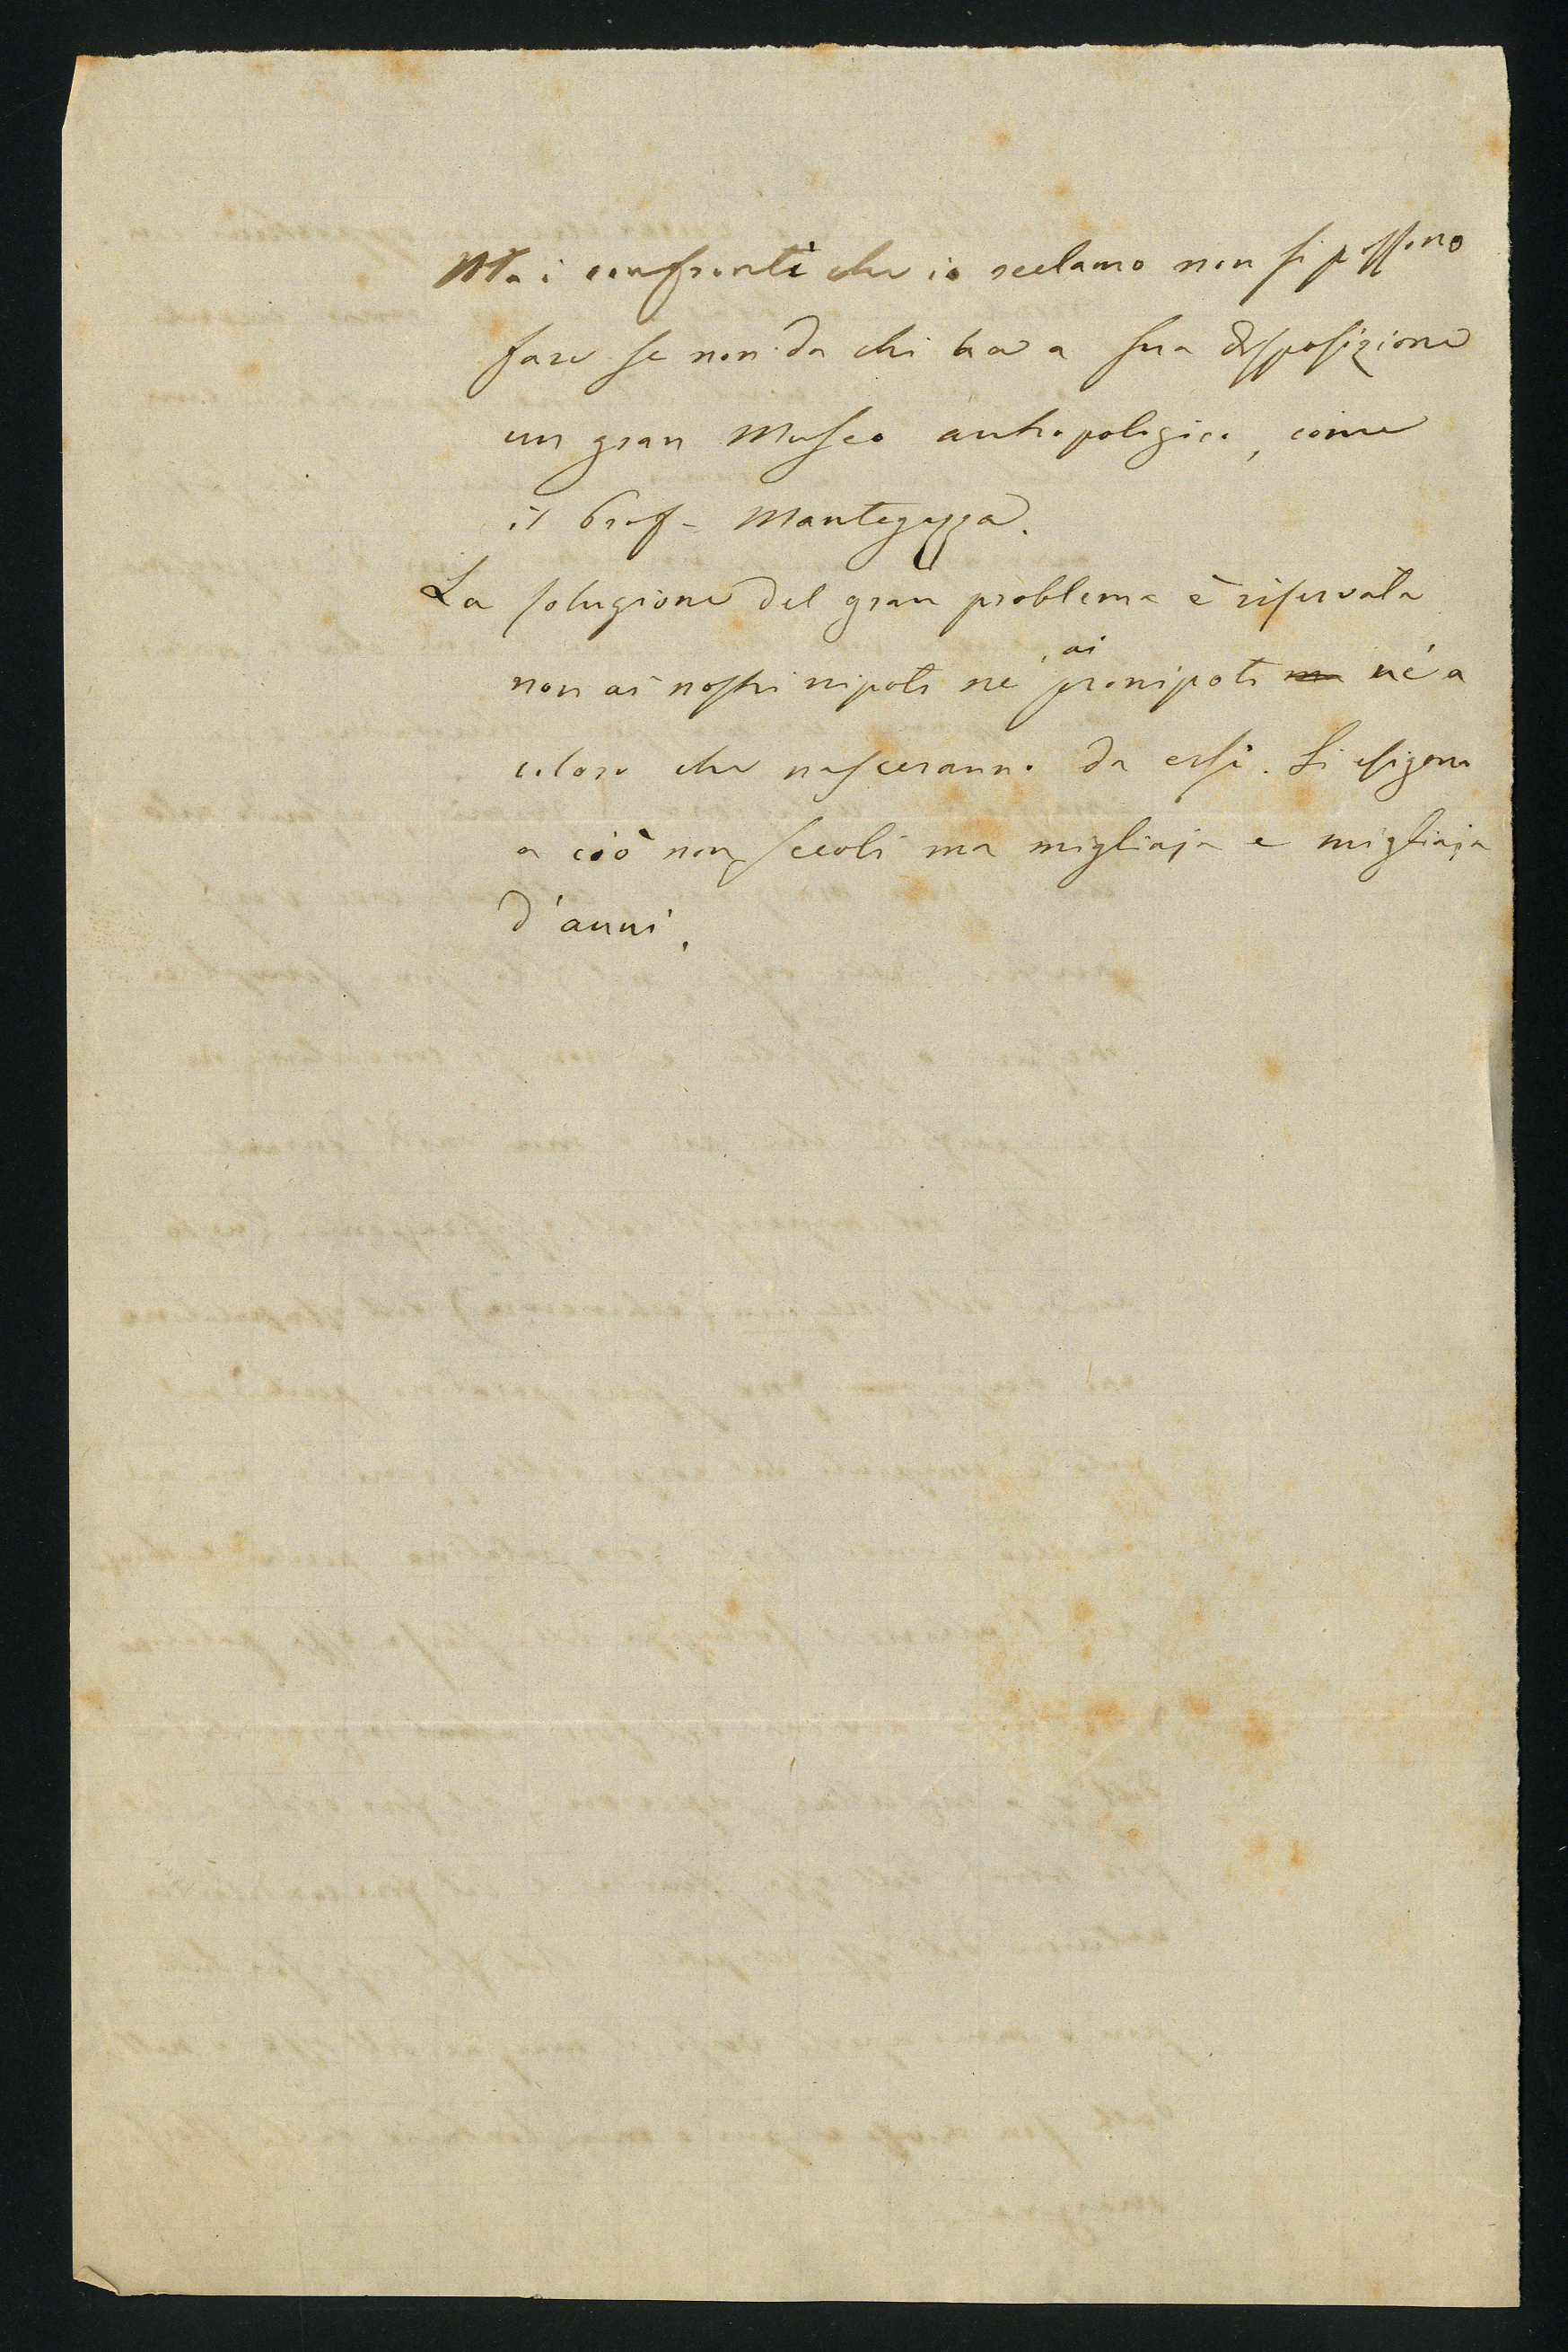 Ma i confronti che io reclamo non si possono
fare se non da chi ha a sua disposizione
un gran Museo antropologico, come
il Prof. Mantegazza.
La soluzione del gran problema è riservata
non ai nostri nipoti nè ai pronipoti ma nè a
coloro che nasceranno da essi. Si esigono
a ciò non secoli ma migliaja e migliaja
d'anni.